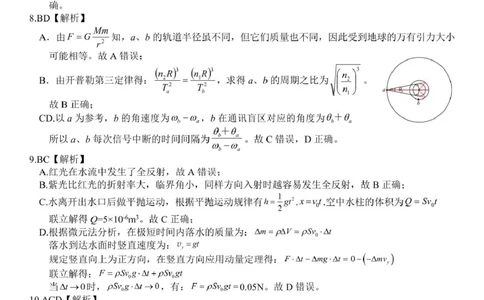 确。
8.BD【解析】
A. 由F = G Mm/r² 知，a、b 的轨道半径虽不同，但它们质量也不同，因此受到地球的万有引力大小
可能相等。故 A 错误；
B. 由开普勒第三定律得：(n₂R)³/Tₐ² = (n₁R)³/T_b²，求得 a、b 的周期之比为 √(n₂/n₁)³。
故 B 正确；
CD.以 a 为参考，b 的角速度为ω_b－ωₐ，b 在通讯盲区对应的角度为θ_b+θₐ
所以 a、b 每次信号中断的时间间隔为 (θ_b+θₐ)/(ω_b－ωₐ)。故 C 错误，D 正确。
9.BC【解析】
A.红光在水流中发生了全反射，故 A 错误；
B.紫光比红光的折射率大，临界角小，同样方向入射时越容易发生全反射，故 B 正确；
C.水离开出水口后做平抛运动，根据平抛运动规律有h=1/2 gt²,x=v₀t,空中水柱的体积为Q = Sv₀t
联立解得 Q=5×10⁻⁶m³。故 C 正确；
D.根据微元法分析，在极短时间内落水的质量为：Δm=ρΔV=ρSv₀·Δt
落水到达水面时竖直速度为：v_y=gt
规定竖直向上为正方向，在竖直方向应用动量定理得：F·Δt－Δmg·Δt=0－(－Δmv_y)
联立解得：F=ρSv₀g·Δt+ρSv₀gt
当Δt→0时，ρSv₀g·Δt→0，有：F=ρSv₀gt=0.05N。故 D 错误。
10.ACD【解析】